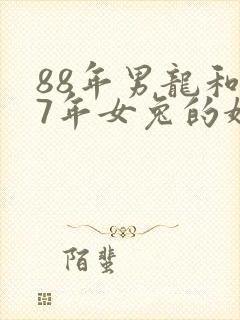 88年男龍和
7年女兔的
陌蜚